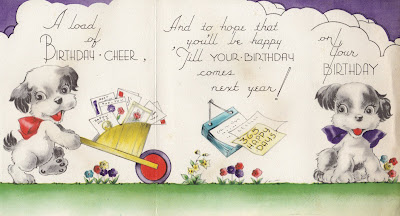 A load
of
BIRTHDAY·CHEER,
And to hope that
you'll be happy
'Till YOUR·BIRTHDAY
comes
next year!
365
HAPPY
DAYS
on
Your
BIRTHDAY